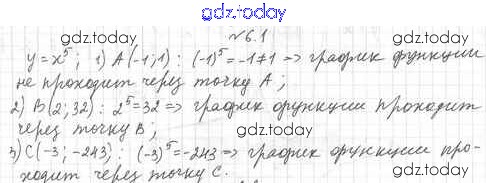 gdz.today
№6.1
y = x⁵; 1) A(-1; 1) : (-1)⁵ = -1 ≠ 1 => график функции
gdz.today
не проходит через точку A;
gdz.today
2) B(2; 32) : 2⁵ = 32 => график функции проходит
через точку B;
gdz.today
gdz.today
3) C(-3; -243) : (-3)⁵ = -243 => график функции про-
ходит через точку C.
gdz.today